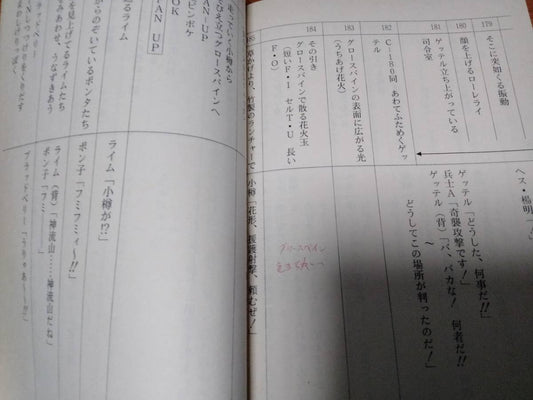 179
そこに突如くる振動
180
顔を上げるローレライ
181
ゲッテル立ち上がっている
司令室
182
C-180同 あわてふためくゲッ
テル
183
グロースバインの表面に広がる光
(うちあげ花火)
184
その引き
グロースバインで散る花火玉
(短いF・I セルT・U 長い
F・O)
185
草かげより、竹製のランチャーで
ヘス・楊明
ゲッテル「どうした、何事だ!!」
兵士A「奇襲攻撃です!」
ゲッテル(背)「バ、バカな! 何者だ!!
~
どうしてこの場所が判ったのだ!」
グロースペイン
小樽「花形、援護射撃、頼むぜ!」
小樽から
びえ立つグロースバインへ
AN-UP
ピンボケ
OK
AN UP
るライム
からのぞいているボンタたち
を見上げてるライムたち
みあわせ、うなずきあう
ッドベリー
ライム「小樽が!?」
ポン子「フミフミィ~!!」
ライム(背)「神流山……神流山だね」
ポン子「フミ
ブラッドベリー「うりゃあ~!!」